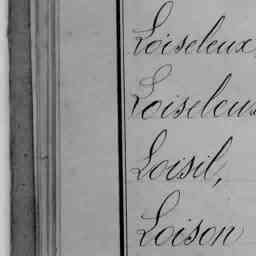 Loiseleux
Loiseleux
Loisil,
Loison